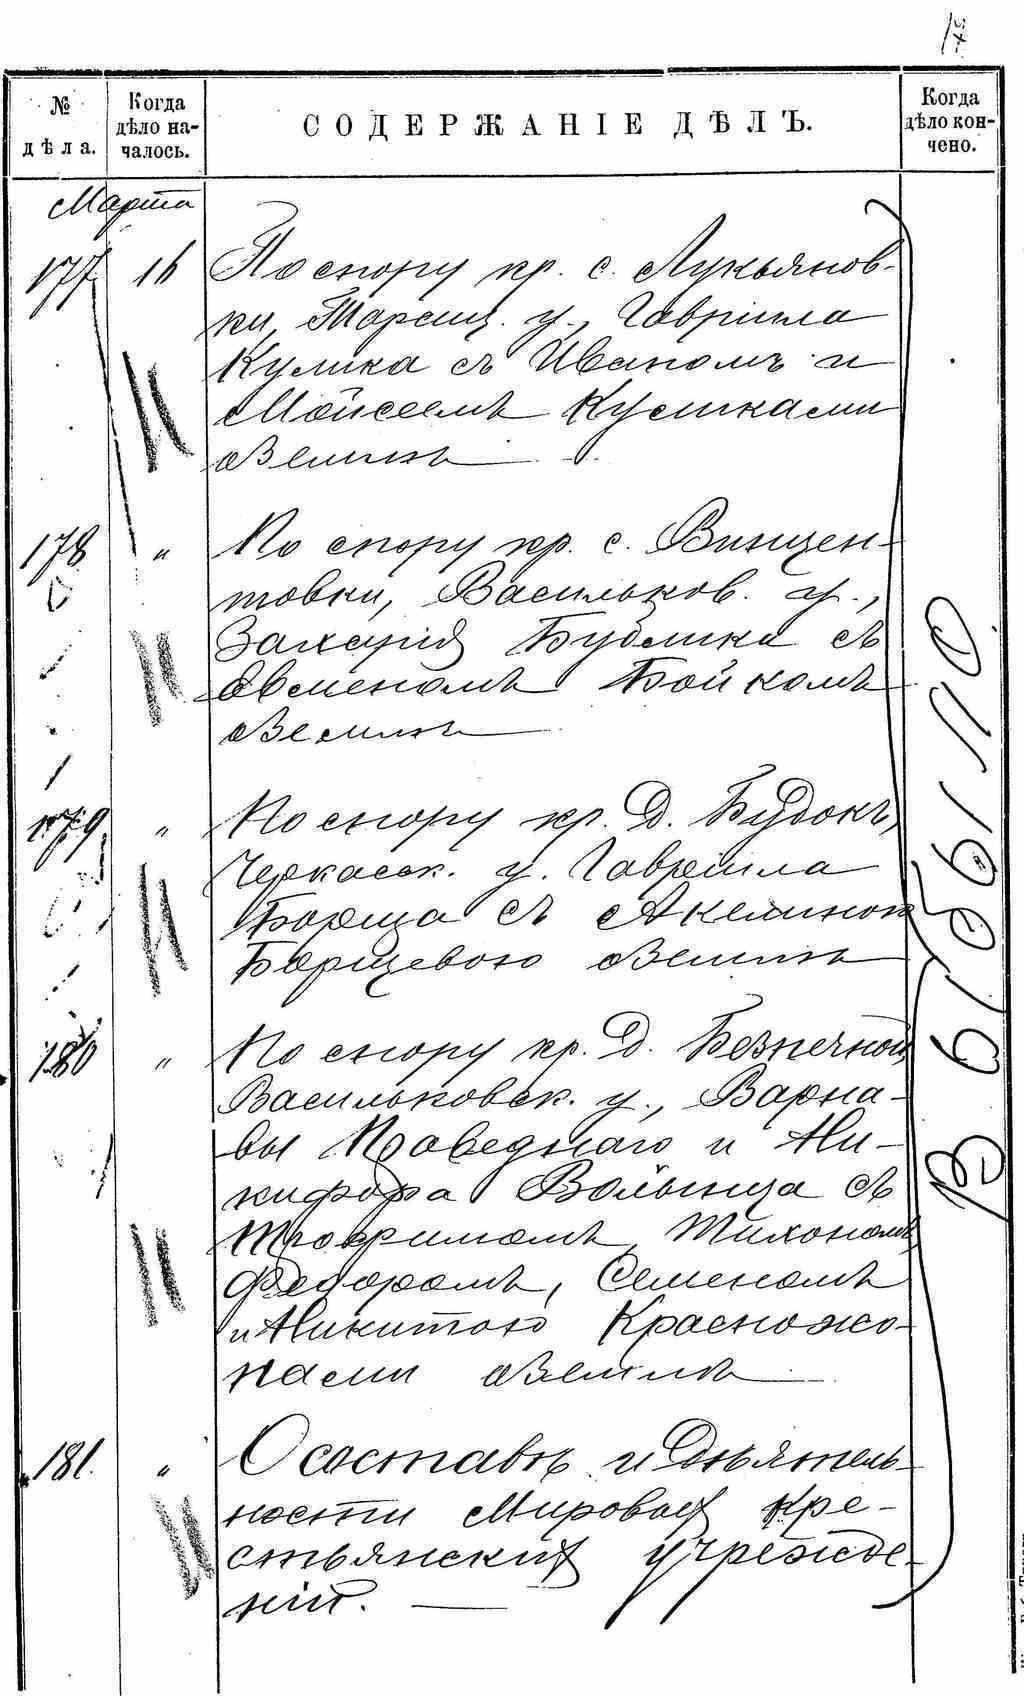 № дѣла.
Когда дѣло на-
чалось.
СОДЕРЖАНІЕ ДѢЛЪ.
Когда
дѣло кон-
чено.
Марта
177 16 По спору кр. с. Лукьянов-
ки, Таращ. у., Гавріила
Кулика съ Иваномъ и
Мойсеемъ Куликами
о землѣ
178 " По спору кр. с. Винцен-
товки, Васильков. у.,
Захарія Бублика съ
Овменомъ Бойкомъ
о землѣ
179 " По спору кр. д. Будокъ,
Черкасск. у. Гавріила
Борща съ Акелиною
Борщевою о землѣ
180 " По спору кр. д. Безпечной,
Васильковск. у., Варна-
вы Праведнаго и Ни-
кифора Волынца съ
Трофимомъ, Тихономъ,
Федоромъ, Семеномъ
и Никитою Красножо-
нами о землѣ
181. " О составѣ и дѣятель-
ности Мировых кре-
стьянских учрежде-
ній.